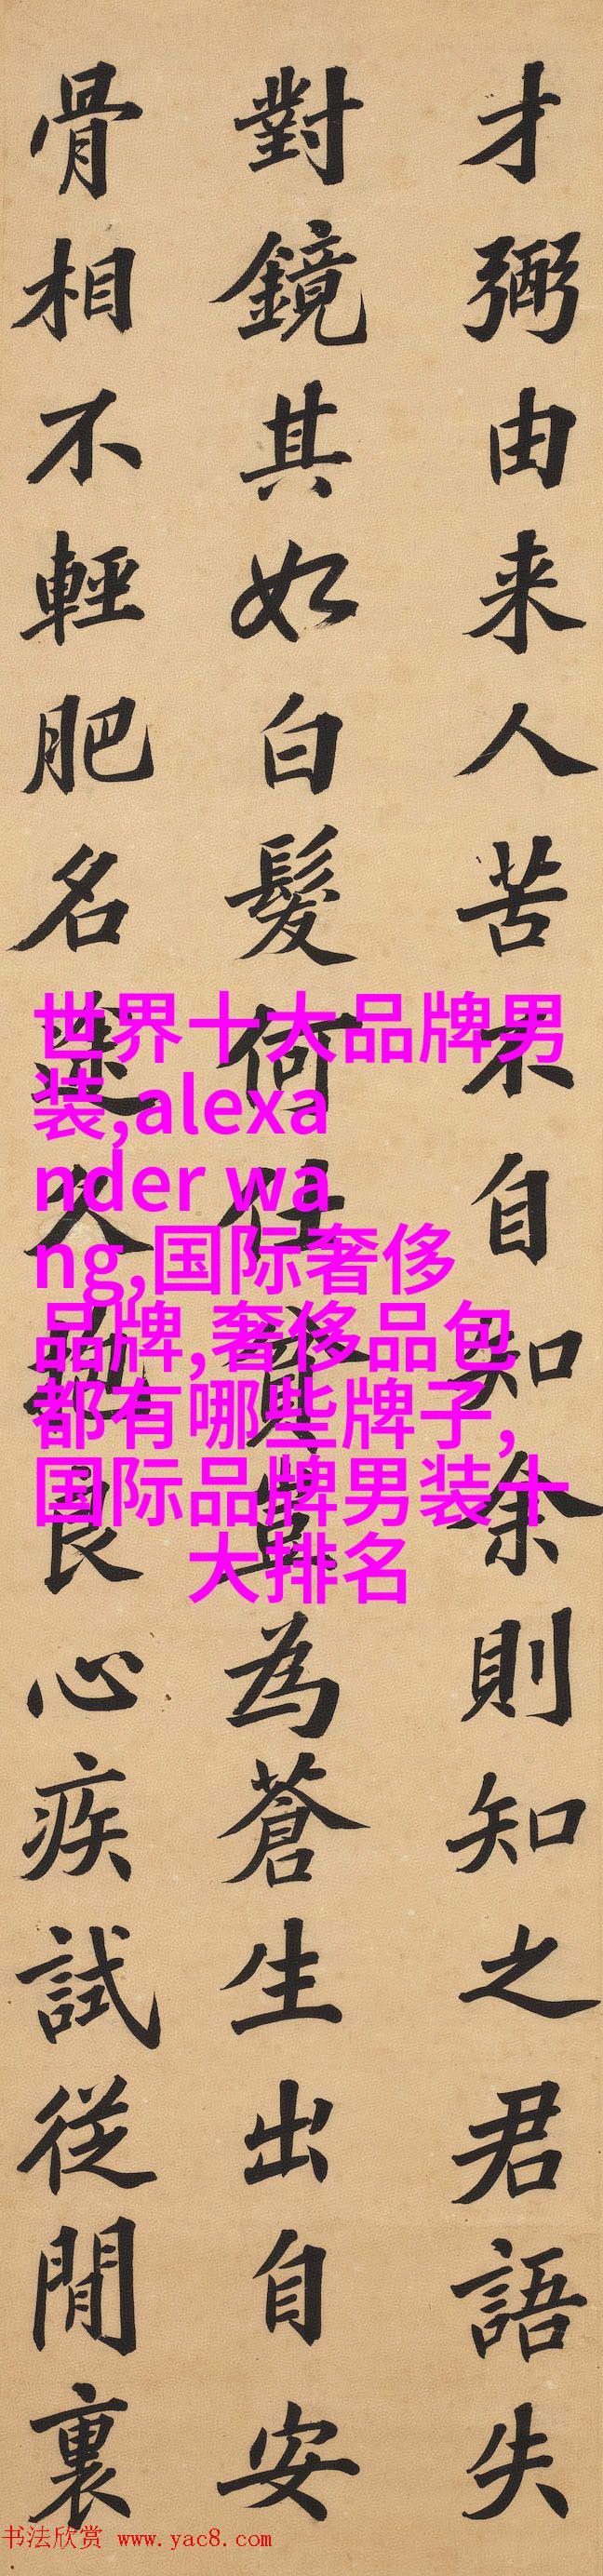 才弼由来人苦不自知余則知之君語失
對鏡其如白髮何仕豈為蒼生出自安
骨相不輕肥名久良心疾試從閒裏
世界十大品牌男
装,alexa
nder wa
ng,国际奢侈
品牌,奢侈品包
都有哪些牌子,
国际品牌男装十
大排名
书法欣赏 www.yac8.com